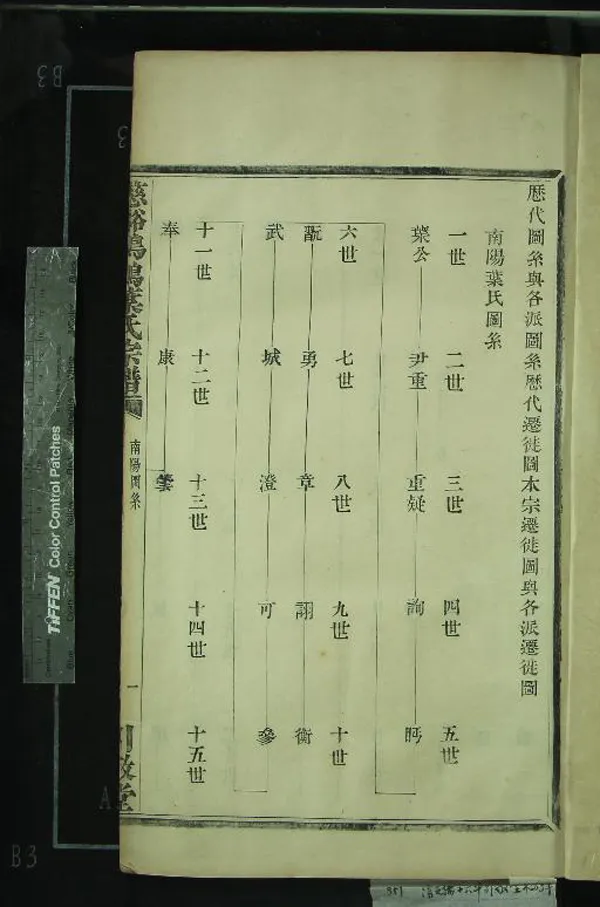 歷代圖系與各派圖系歷代遷徙圖本宗遷徙圖與各派遷徙圖
南陽葉氏圖系
一世 二世 三世 四世 五世
葉公 尹重 重疑 詢 眄
六世 七世 八世 九世 十世
翫 勇 章 詡 衡
武 城 澄 可 參
十一世 十二世 十三世 十四世 十五世
奉 康 雲
葉氏宗譜
南陽圖系
一
TIFFEN Color Control Patches
B3
B3
351